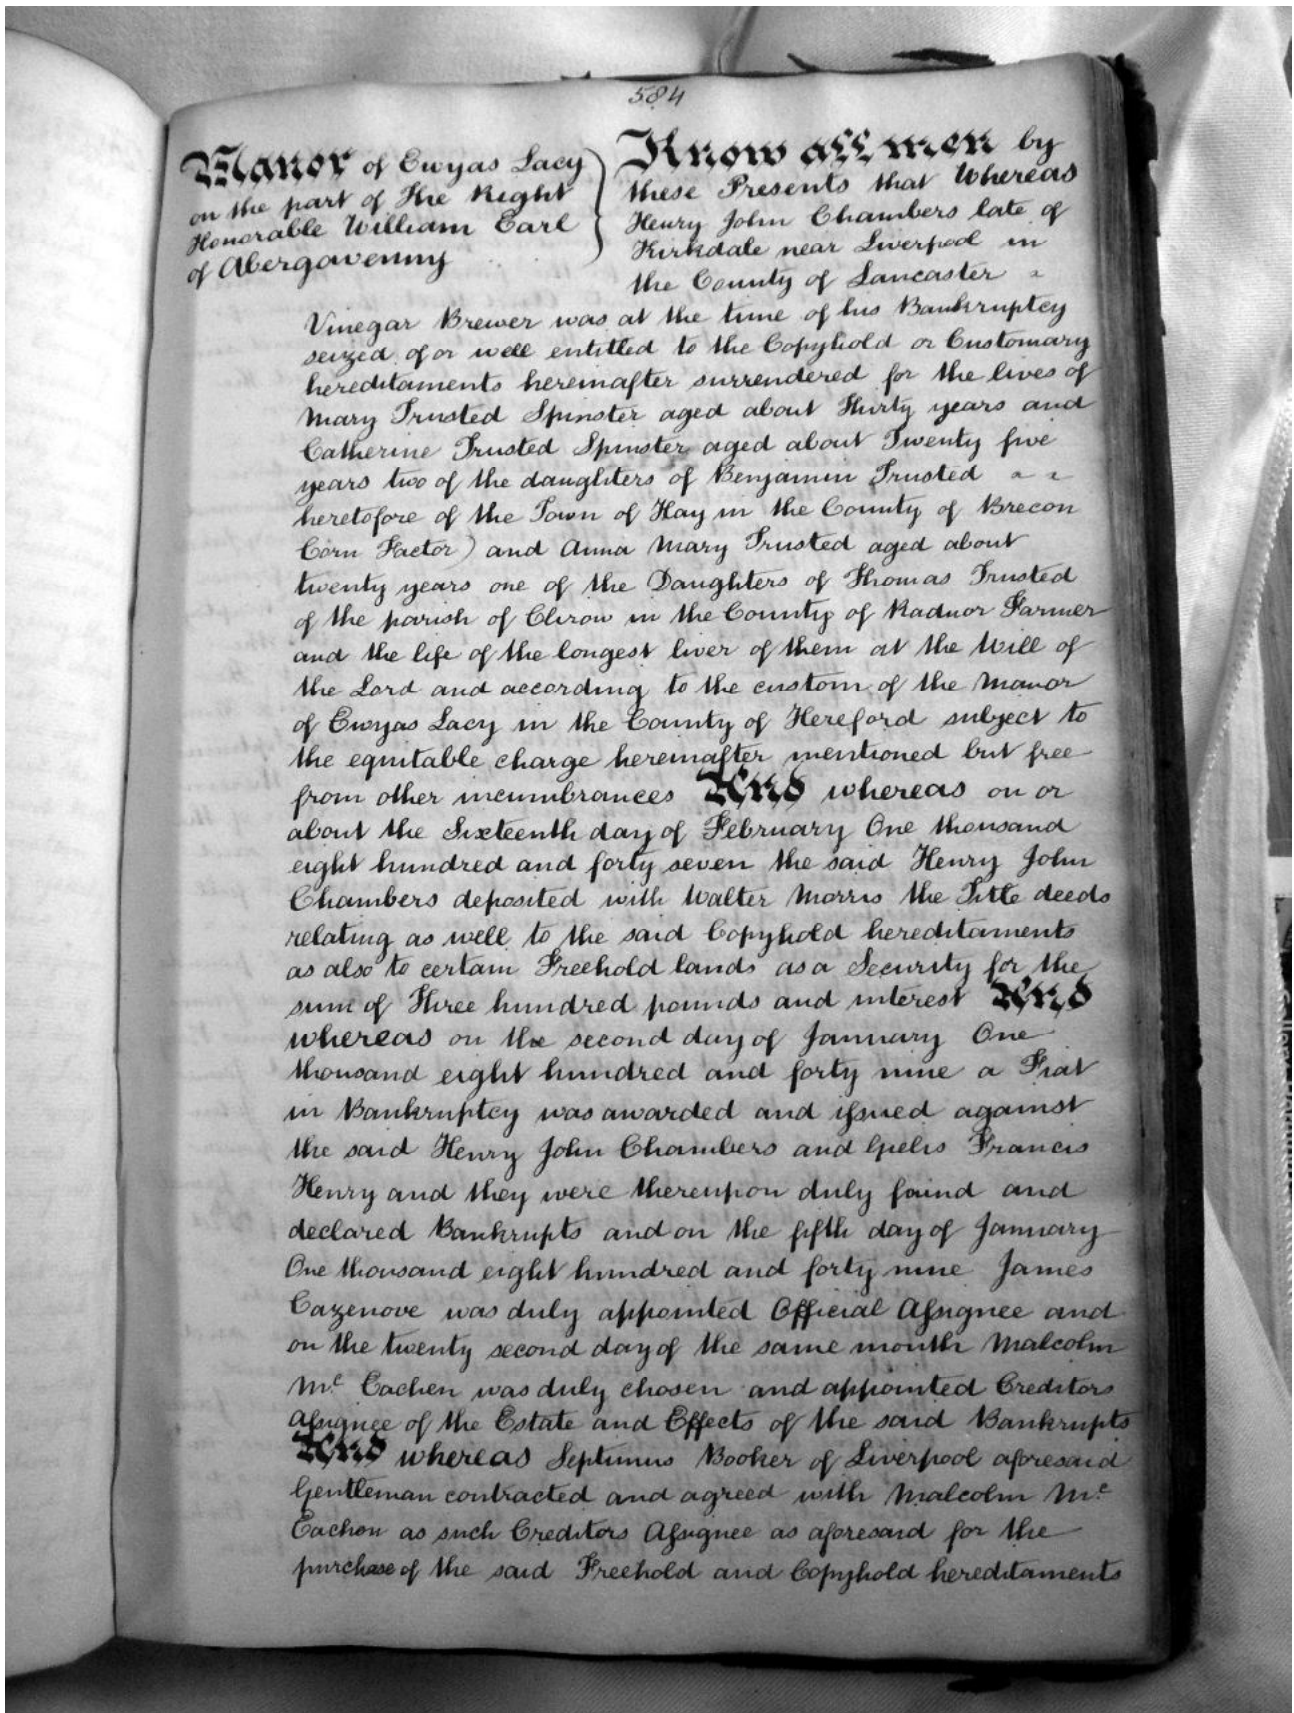 584
Manor of Ewyas Lacy
on the part of The Right
Honorable William Earl
of Abergavenny
Know all men by
these Presents that Whereas
Henry John Chambers late of
Kirkdale near Liverpool in
the County of Lancaster
Vinegar Brewer was at the time of his Bankruptcy
seized of or well entitled to the Copyhold or Customary
hereditaments hereinafter surrendered for the lives of
Mary Trusted Spinster aged about Thirty years and
Catherine Trusted Spinster aged about Twenty five
years two of the daughters of Benjamin Trusted
heretofore of the Town of Hay in the County of Brecon
Corn Factor) and Anna Mary Trusted aged about
twenty years one of the Daughters of Thomas Trusted
of the parish of Clirow in the County of Radnor Farmer
and the life of the longest liver of them at the Will of
the Lord and according to the custom of the Manor
of Ewyas Lacy in the County of Hereford subject to
the equitable charge hereinafter mentioned but free
from other incumbrances And whereas on or
about the Sixteenth day of February One thousand
eight hundred and forty seven the said Henry John
Chambers deposited with Walter Morris the Title deeds
relating as well to the said Copyhold hereditaments
as also to certain Freehold lands as a Security for the
sum of Three hundred pounds and interest And
whereas on the second day of January One
thousand eight hundred and forty nine a Fiat
in Bankruptcy was awarded and issued against
the said Henry John Chambers and Francis
Henry and they were thereupon duly found and
declared Bankrupts and on the fifth day of January
One thousand eight hundred and forty nine James
Cazenove was duly appointed Official Assignee and
on the twenty second day of the same month Malcolm
Mc Eachen was duly chosen and appointed Creditors
Assignee of the Estate and Effects of the said Bankrupts
And whereas Septimus Booker of Liverpool aforesaid
Gentleman contracted and agreed with Malcolm Mc
Eachen as such Creditors Assignee as aforesaid for the
purchase of the said Freehold and Copyhold hereditaments